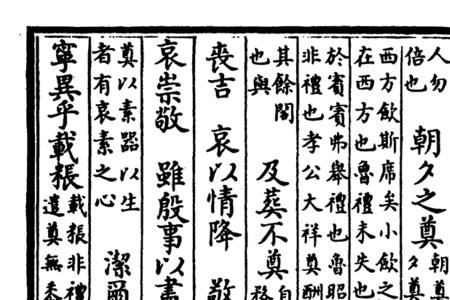 人勿
倍也
朝夕之奠
朝奠
夕奠
西方歛斯席矣小歛之
在西方也魯禮末失也
於賓賓弗舉禮也魯昭
非禮也孝公大祥奠酬
其餘閣
也與
及葬不奠
喪吉 哀以情降 敬
哀崇敬 雖殷事以
奠以素器以生
者有哀素之心
潔爾
寧異乎載粻
載粻非禮
遣奠無黍